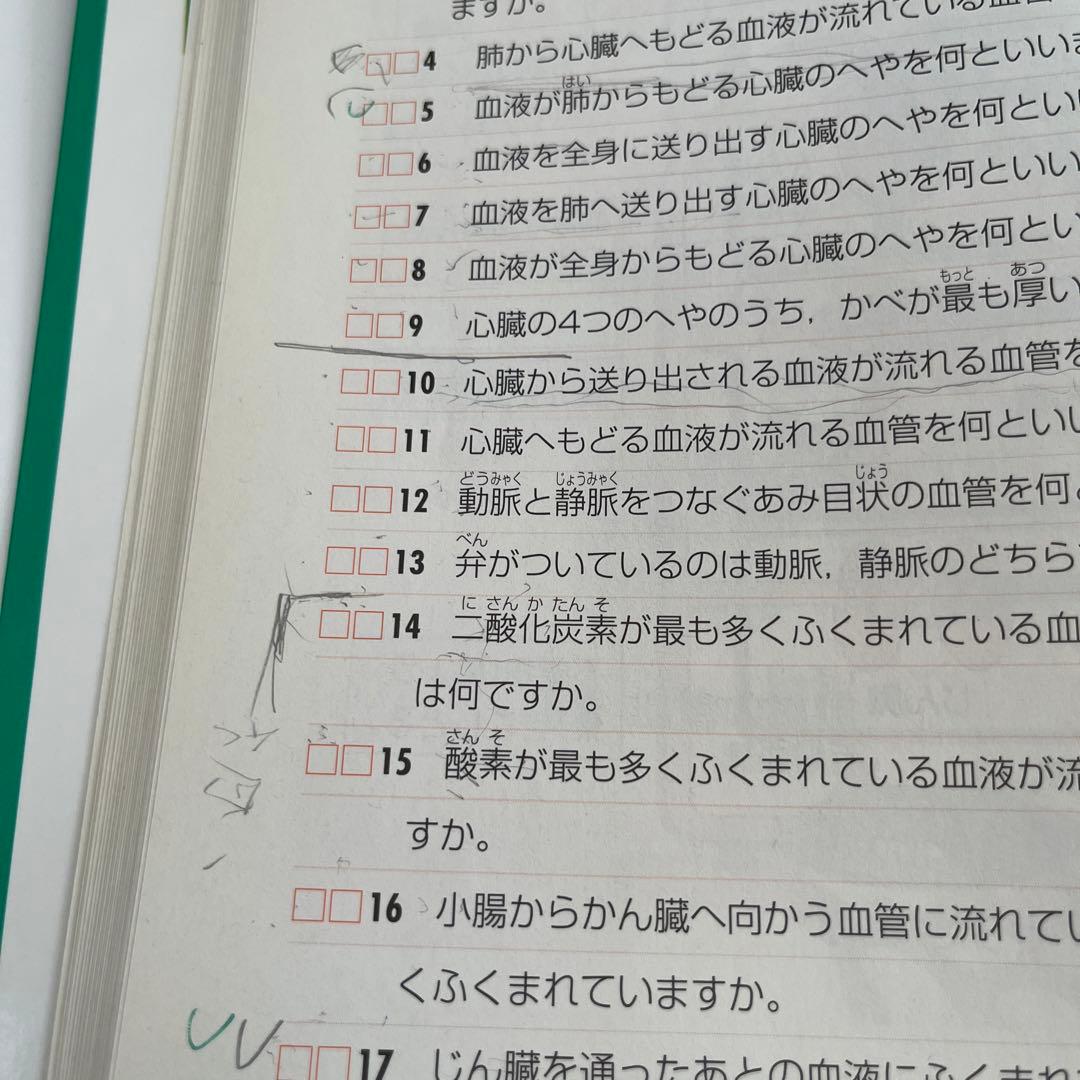 ますか。
4 肺から心臓へもどる血液が流れている血管
5 血液が肺からもどる心臓のへやを何といいま
はい
6 血液を全身に送り出す心臓のへやを何とい
7 血液を肺へ送り出す心臓のへやを何といい
8 血液が全身からもどる心臓のへやを何とい
9 心臓の4つのへやのうち，かべが最も厚い
もっと あつ
10 心臓から送り出される血液が流れる血管を
11 心臓へもどる血液が流れる血管を何といい
どうみゃく じょうみゃく じょう
12 動脈と静脈をつなぐあみ目状の血管を何
べん
13 弁がついているのは動脈，静脈のどちら
に さん か たん そ
14 二酸化炭素が最も多くふくまれている血
は何ですか。
さん そ
15 酸素が最も多くふくまれている血液が流
すか。
16 小腸からかん臓へ向かう血管に流れてい
くふくまれていますか。
17 じん臓を通ったあとの血液にふくまれ